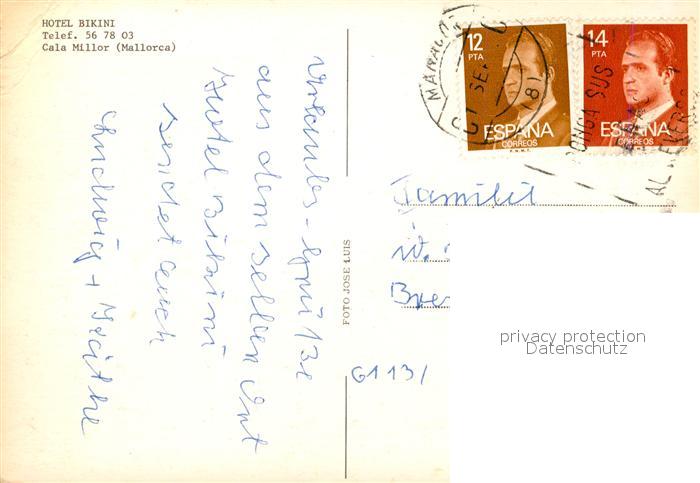 HOTEL BIKINI
Telef. 56 78 03
Cala Millor (Mallorca)
Urlaubs-Grüße
aus dem selben Ort
Hotel Bikini
sendet Euch
Ludwig + Käthe
FOTO JOSE LUIS
12
PTA
ESPAÑA
CORREOS
14
PTA
ESPAÑA
CORREOS
SUS
AL
81
Familie
W.
Bre
6113/
privacy protection
Datenschutz